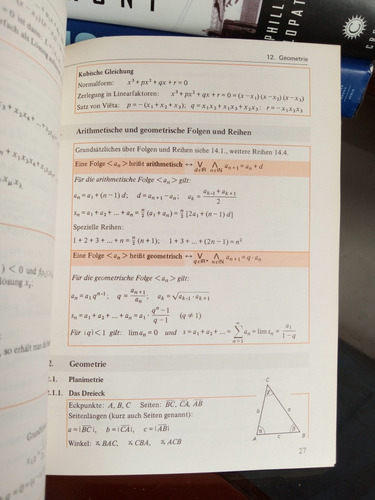 PHILL
OPAT
12. Geometrie
Kubische Gleichung
Normalform: x³+px²+qx+r=0
Zerlegung in Linearfaktoren: x³+px²+qx+r=0=(x−x₁)(x−x₂)(x−x₃)
Satz von Viëta: p=−(x₁+x₂+x₃); q=x₁x₂+x₁x₃+x₂x₃; r=−x₁x₂x₃
Arithmetische und geometrische Folgen und Reihen
Grundsätzliches über Folgen und Reihen siehe 14.1., weitere Reihen 14.4.
Eine Folge <aₙ> heißt arithmetisch ↔ ⋁ d∈R ⋀ n∈N aₙ₊₁=aₙ+d
Für die arithmetische Folge <aₙ> gilt:
aₙ=a₁+(n−1)d; d=aₙ₊₁−aₙ; aₖ=(aₖ₋₁+aₖ₊₁)/2
sₙ=a₁+a₂+...+aₙ=n/2(a₁+aₙ)=n/2[2a₁+(n−1)d]
Spezielle Reihen:
1+2+3+...+n=n/2(n+1); 1+3+...+(2n−1)=n²
Eine Folge <aₙ> heißt geometrisch ↔ ⋁ q∈R* ⋀ n∈N aₙ₊₁=q·aₙ
Für die geometrische Folge <aₙ> gilt:
aₙ=a₁qⁿ⁻¹; q=aₙ₊₁/aₙ; aₖ=√(aₖ₋₁·aₖ₊₁)
sₙ=a₁+a₂+...+aₙ=a₁·(qⁿ−1)/(q−1) (q≠1)
Für |q|<1 gilt: lim aₙ=0 und s=a₁+a₂+...=∑ₙ₌₁^∞ aₙ=lim sₙ=a₁/(1−q)
2. Geometrie
2.1. Planimetrie
2.1.1. Das Dreieck
Eckpunkte: A, B, C Seiten: BC, CA, AB
Seitenlängen (kurz auch Seiten genannt):
a=|BC|, b=|CA|, c=|AB|
Winkel: ∢ BAC, ∢ CBA, ∢ ACB
C
b
a
A
c
B
27